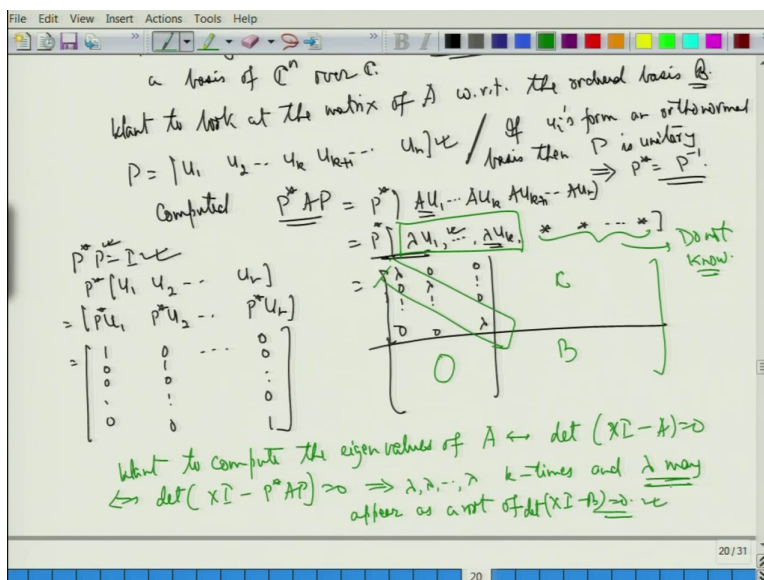 File Edit View Insert Actions Tools Help
a basis of ℂⁿ over ℂ.
Want to look at the matrix of A w.r.t. the ordered basis B.
P = [u₁ u₂ ... u_k u_{k+1} ... u_n] / If uᵢ's form an orthonormal
basis then P is unitary
⇒ P* = P⁻¹.
Computed P*AP = P*[Au₁ ... Au_k Au_{k+1} ... Au_n]
= P*[λu₁, ..., λu_k, * * ... *]
Do not
know.
P*P = I
P*[u₁ u₂ ... u_n]
= [P*u₁ P*u₂ ... P*u_n]
= [1 0 ... 0
0 1 0
0 0 :
: : 0
0 0 1]
= [λ 0 0
0 λ :
: : 0
0 0 λ
C
O B]
Want to compute the eigen values of A ↔ det (xI - A) = 0
⇔ det (xI - P*AP) = 0 ⇒ λ, λ, ..., λ k-times and λ may
appear as a root of det(xI - B) = 0.
20 / 31
20